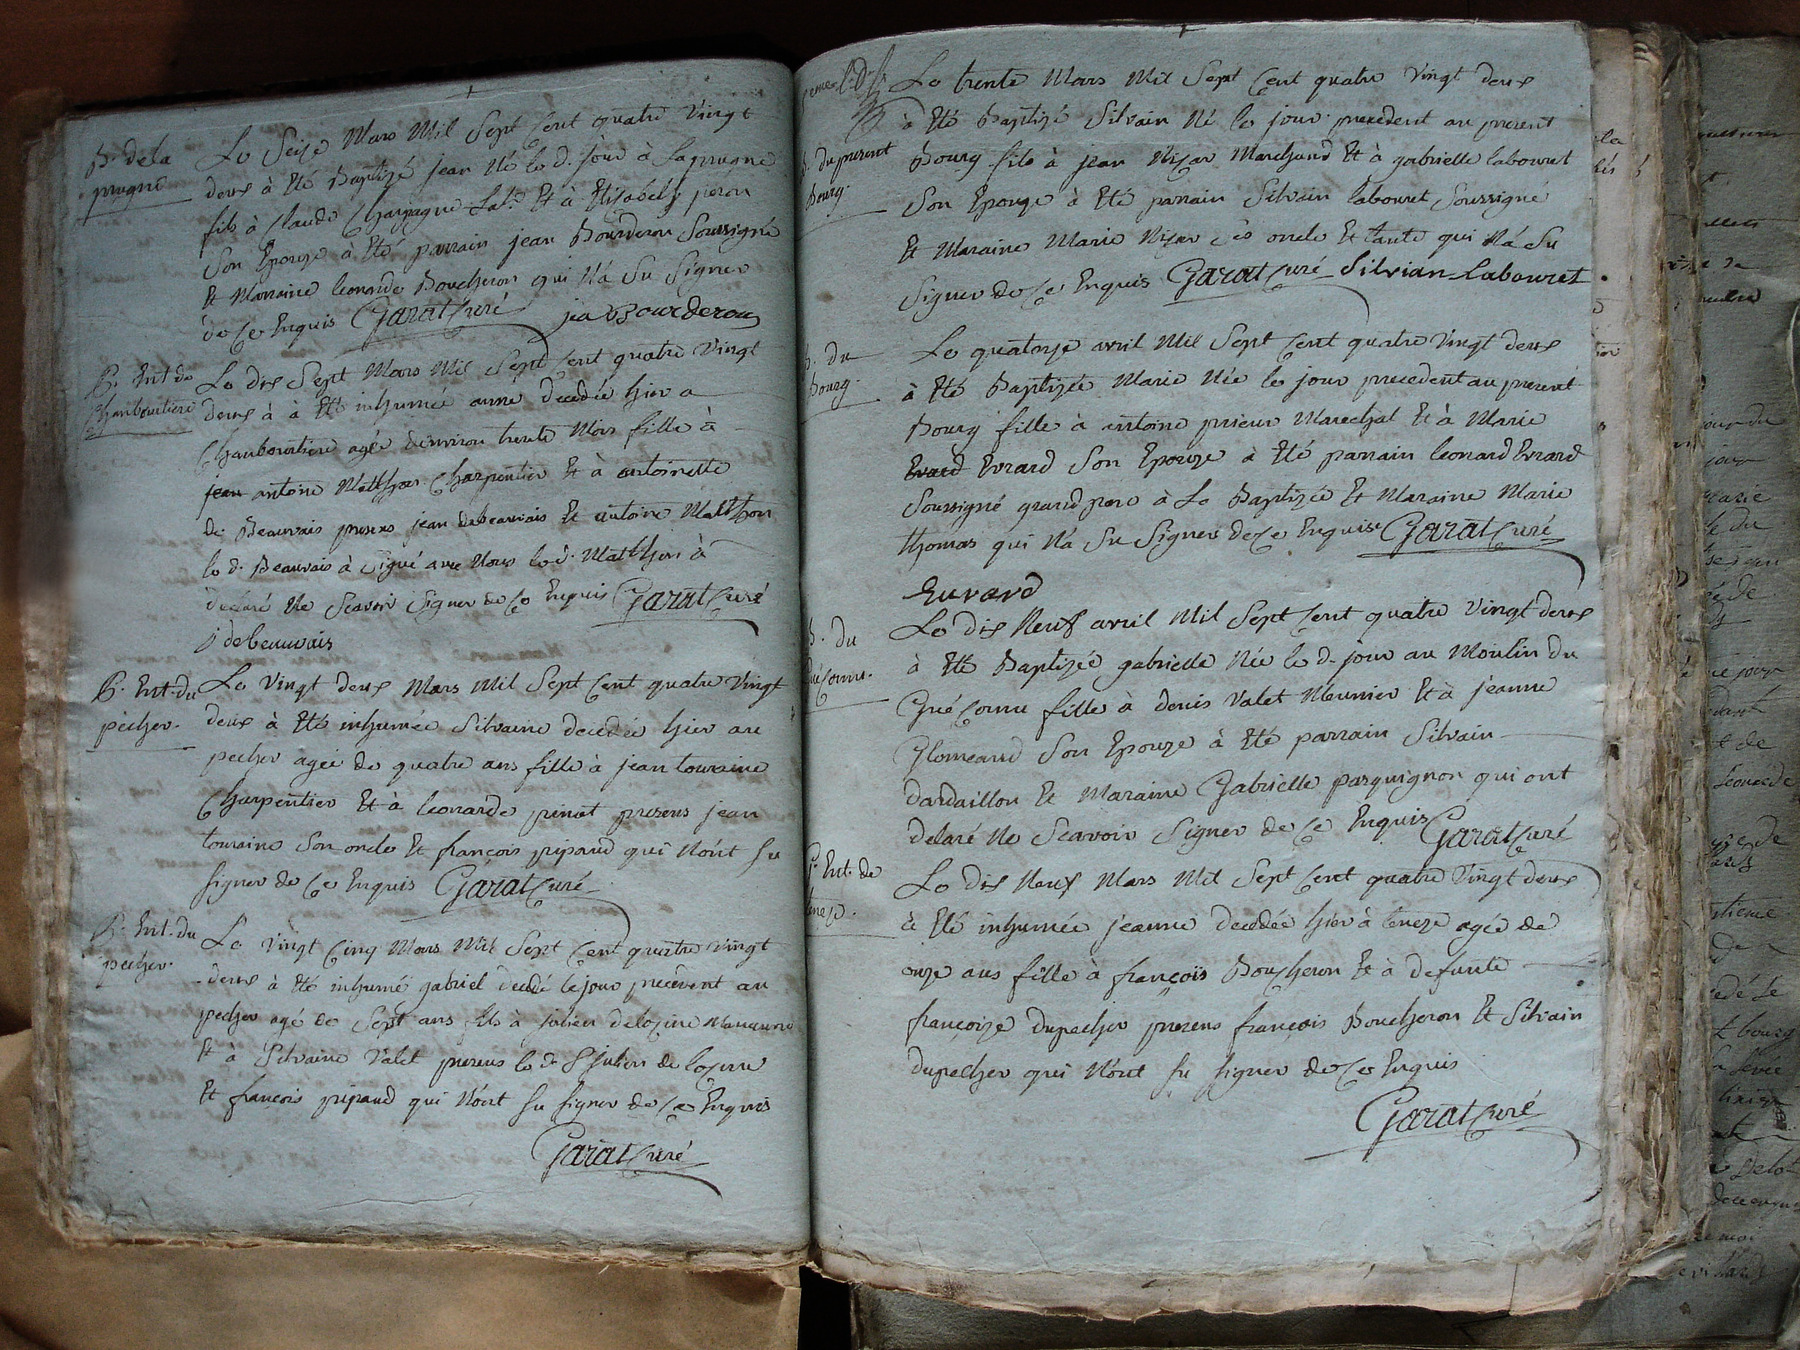 B. de la
prugne
Le Seize Mars Mil Sept Cent quatre Vingt
deux à Eté Baptizé jean Né le d. jour à Laprugne
fils à Claude Champagne Lab.r Et à Elisabeth peron
Son Epouze à Eté parrain jean Bourderon Soussigné
Et Marraine leonarde Boucheron qui N'a Su Signer
de Ce Enquis Garat Curé jea Bourderon
B. Ent. de
Chanboutiere
Le dix Sept Mars Mil Sept Cent quatre Vingt
deux à à Eté inhumée anne decedée hier a
Chanboutiere agée d'environ trente Mois fille à
jean antoine Matthon Charpentier Et à antoinette
de Beauvais presens jean debeauvais Et antoine Matthon
le d. Beauvais à Signé avec Nous le d. Matthon à
declaré Ne Scavoir Signer de Ce Enquis Garat Curé
j debeauvais
B. Ent. du
pecher.
Le Vingt deux Mars Mil Sept Cent quatre Vingt
deux à Eté inhumée Silvaine decedée hier au
pecher agée de quatre ans fille à jean touraine
Charpentier Et à leonarde pinot presens jean
touraine Son oncle Et françois pipaud qui N'ont Su
Signer de Ce Enquis Garat Curé
B. Ent. du
pecher.
Le Vingt Cinq Mars Mil Sept Cent quatre Vingt
deux à Eté inhumé gabriel decedé le jour precedent au
pecher agé de Sept ans fils à julien delozine
Et à Silvaine Valet presens le d. julien de lozine
Et françois pipaud qui N'ont Su Signer de Ce Enquis
Garat Curé
B. du present
Bourg.
Le trente Mars Mil Sept Cent quatre Vingt deux
à Eté Baptizé Silvain Né le jour precedent au present
Bourg fils à jean Nizar Marchand Et à gabrielle labouret
Son Epouze à Eté parrain Silvain labouret Soussigné
Et Maraine Marie Nizar Ses oncle Et tante qui N'a Su
Signer de Ce Enquis Garat Curé Silvian Labouret
B. du
Bourg.
Le quatorze avril Mil Sept Cent quatre Vingt deux
à Eté Baptizée Marie Née le jour precedent au present
Bourg fille à antoine prieur Marechal Et à Marie
Evrard Evrard Son Epouze à Eté parrain leonard Evrard
Soussigné grand pere à La Baptizée Et Maraine Marie
thomas qui N'a Su Signer de Ce Enquise Garat Curé
Euvrard
B. du
Gué Cornu.
Le dix Neuf avril Mil Sept Cent quatre Vingt deux
à Eté Baptizée gabrielle Née le d. jour au Moulin du
Gué Cornu fille à denis Valet Meunier Et à jeanne
Glomeaud Son Epouze à Eté parrain Silvain
dardaillon Et Maraine Gabrielle pasquignon qui ont
delaré Ne Scavoir Signer de Ce Enquis Garat Curé
B. Ent. de
Le dix Neuf Mars Mil Sept Cent quatre Vingt deux
à Eté inhumée jeanne decedée hier à teneze agée de
onze ans fille à françois Boucheron Et à defunte
françoize dupecher presens françois Boucheron Et Silvain
dupecher qui N'ont Su Signer de Ce Enquis
Garat Curé